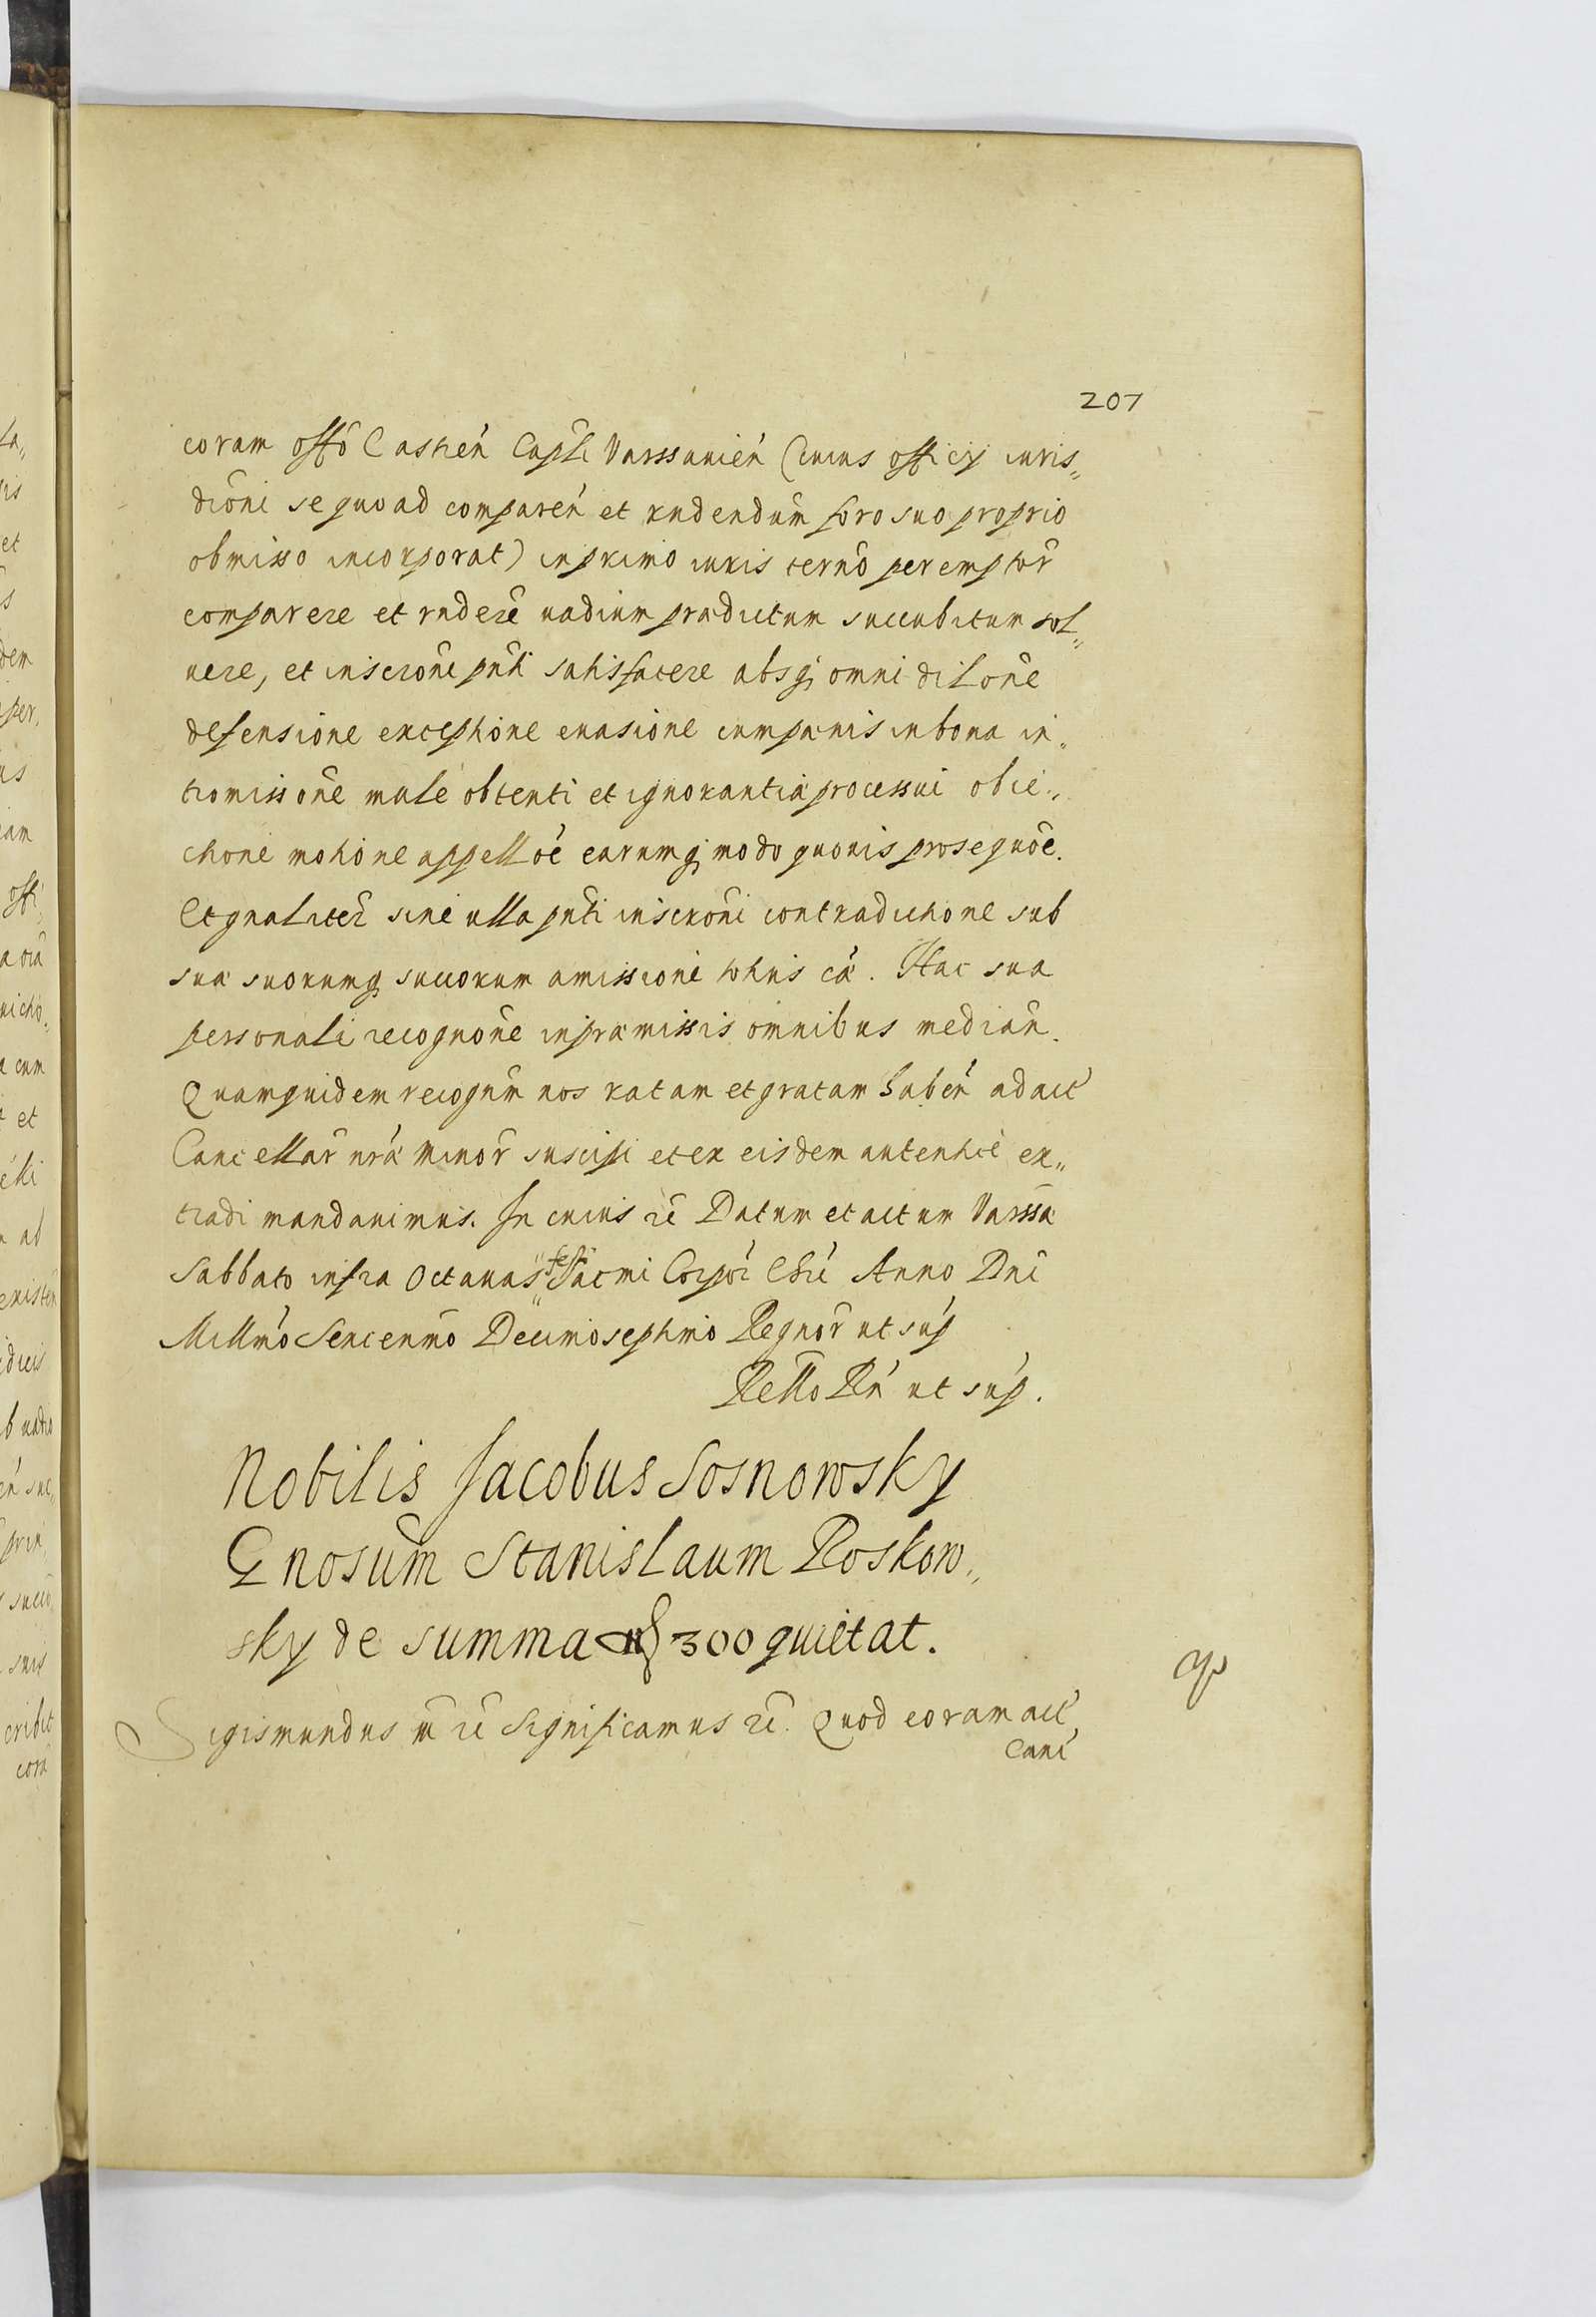 207
coram offo Castren Capli Varssauien (cuius officij iuris„
dioni se quoad comparen et rndendum foro suo proprio
obmisso incorporat) in primo iuris termo peremptor
comparere et rndere uadium prædictum succubitum sol„
uere, et inscrone pnti satisfacere absq omni dilone
defensione exceptione euasione cum pænis in bona in„
tromissone male obtenti et ignorantiæ processui obie„
ctione motione appelloe earumq modo quouis prosequoe.
Et gnaliter sine ulla pnti inscroni contradictione sub
sua suorumq succorum amissione totius cæ. Hac sua
personali recognone in præmissis omnibus median.
Quamquidem recognm nos ratam et gratam haben ad act
Cancellar nræ minor suscipi et ex eisdem autentice ex„
tradi mandauimus. In cuius rē Datum et actum Varssæ
Sabbato infra Octauas festi Sacmi Corpor Chri Anno Dni
Millmo Sexcenmo Decimoseptimo Regnor ut sup
Retto Rn ut sup.
Nobilis Jacobus Sosnowsky
Gnosum Stanislaum Roskow„
sky de summa 300 quietat.
Sigismundus III rē Significamus rē. Quod coram act
Canc